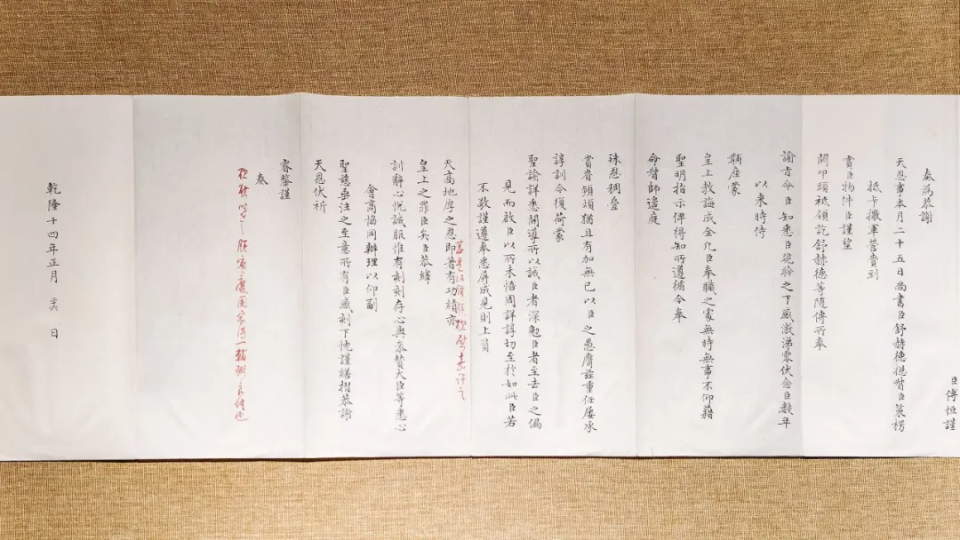 臣傅恒謹
奏為恭謝
天恩事本月二十五日尚書臣舒赫德提督臣策楞
抵卡撒軍營賫到
賞臣物件臣謹望
闕叩頭祗領訖舒赫德等隨傳所奉
諭旨令臣知悉臣跪聆之下感激涕零伏念臣數年
以來時侍
黼座蒙
皇上教誨成全凡臣奉職之處無時無事不仰藉
聖明指示俾得知所遵循今奉
命督師邊庭
殊恩稠疊
賞賚頻煩猶且有加無已以臣之愚膺茲重任屢承
諄訓今復荷蒙
聖諭詳悉開導所以誡臣者深勉臣者至去臣之偏
見而啟臣以所未悟周詳諄切至於如此臣若
不敬謹遵奉悉屏成見則上負
天高地厚之恩即著有功績亦
皇上之罪臣矣臣恭繹
訓諭心悅誠服惟有刻刻存心與參贊大臣等悉心
會商協同辦理以仰副
聖慈垂注之至意所有臣感刻下忱謹繕摺恭謝
天恩伏祈
睿鑒謹
奏
乾隆十四年正月 日